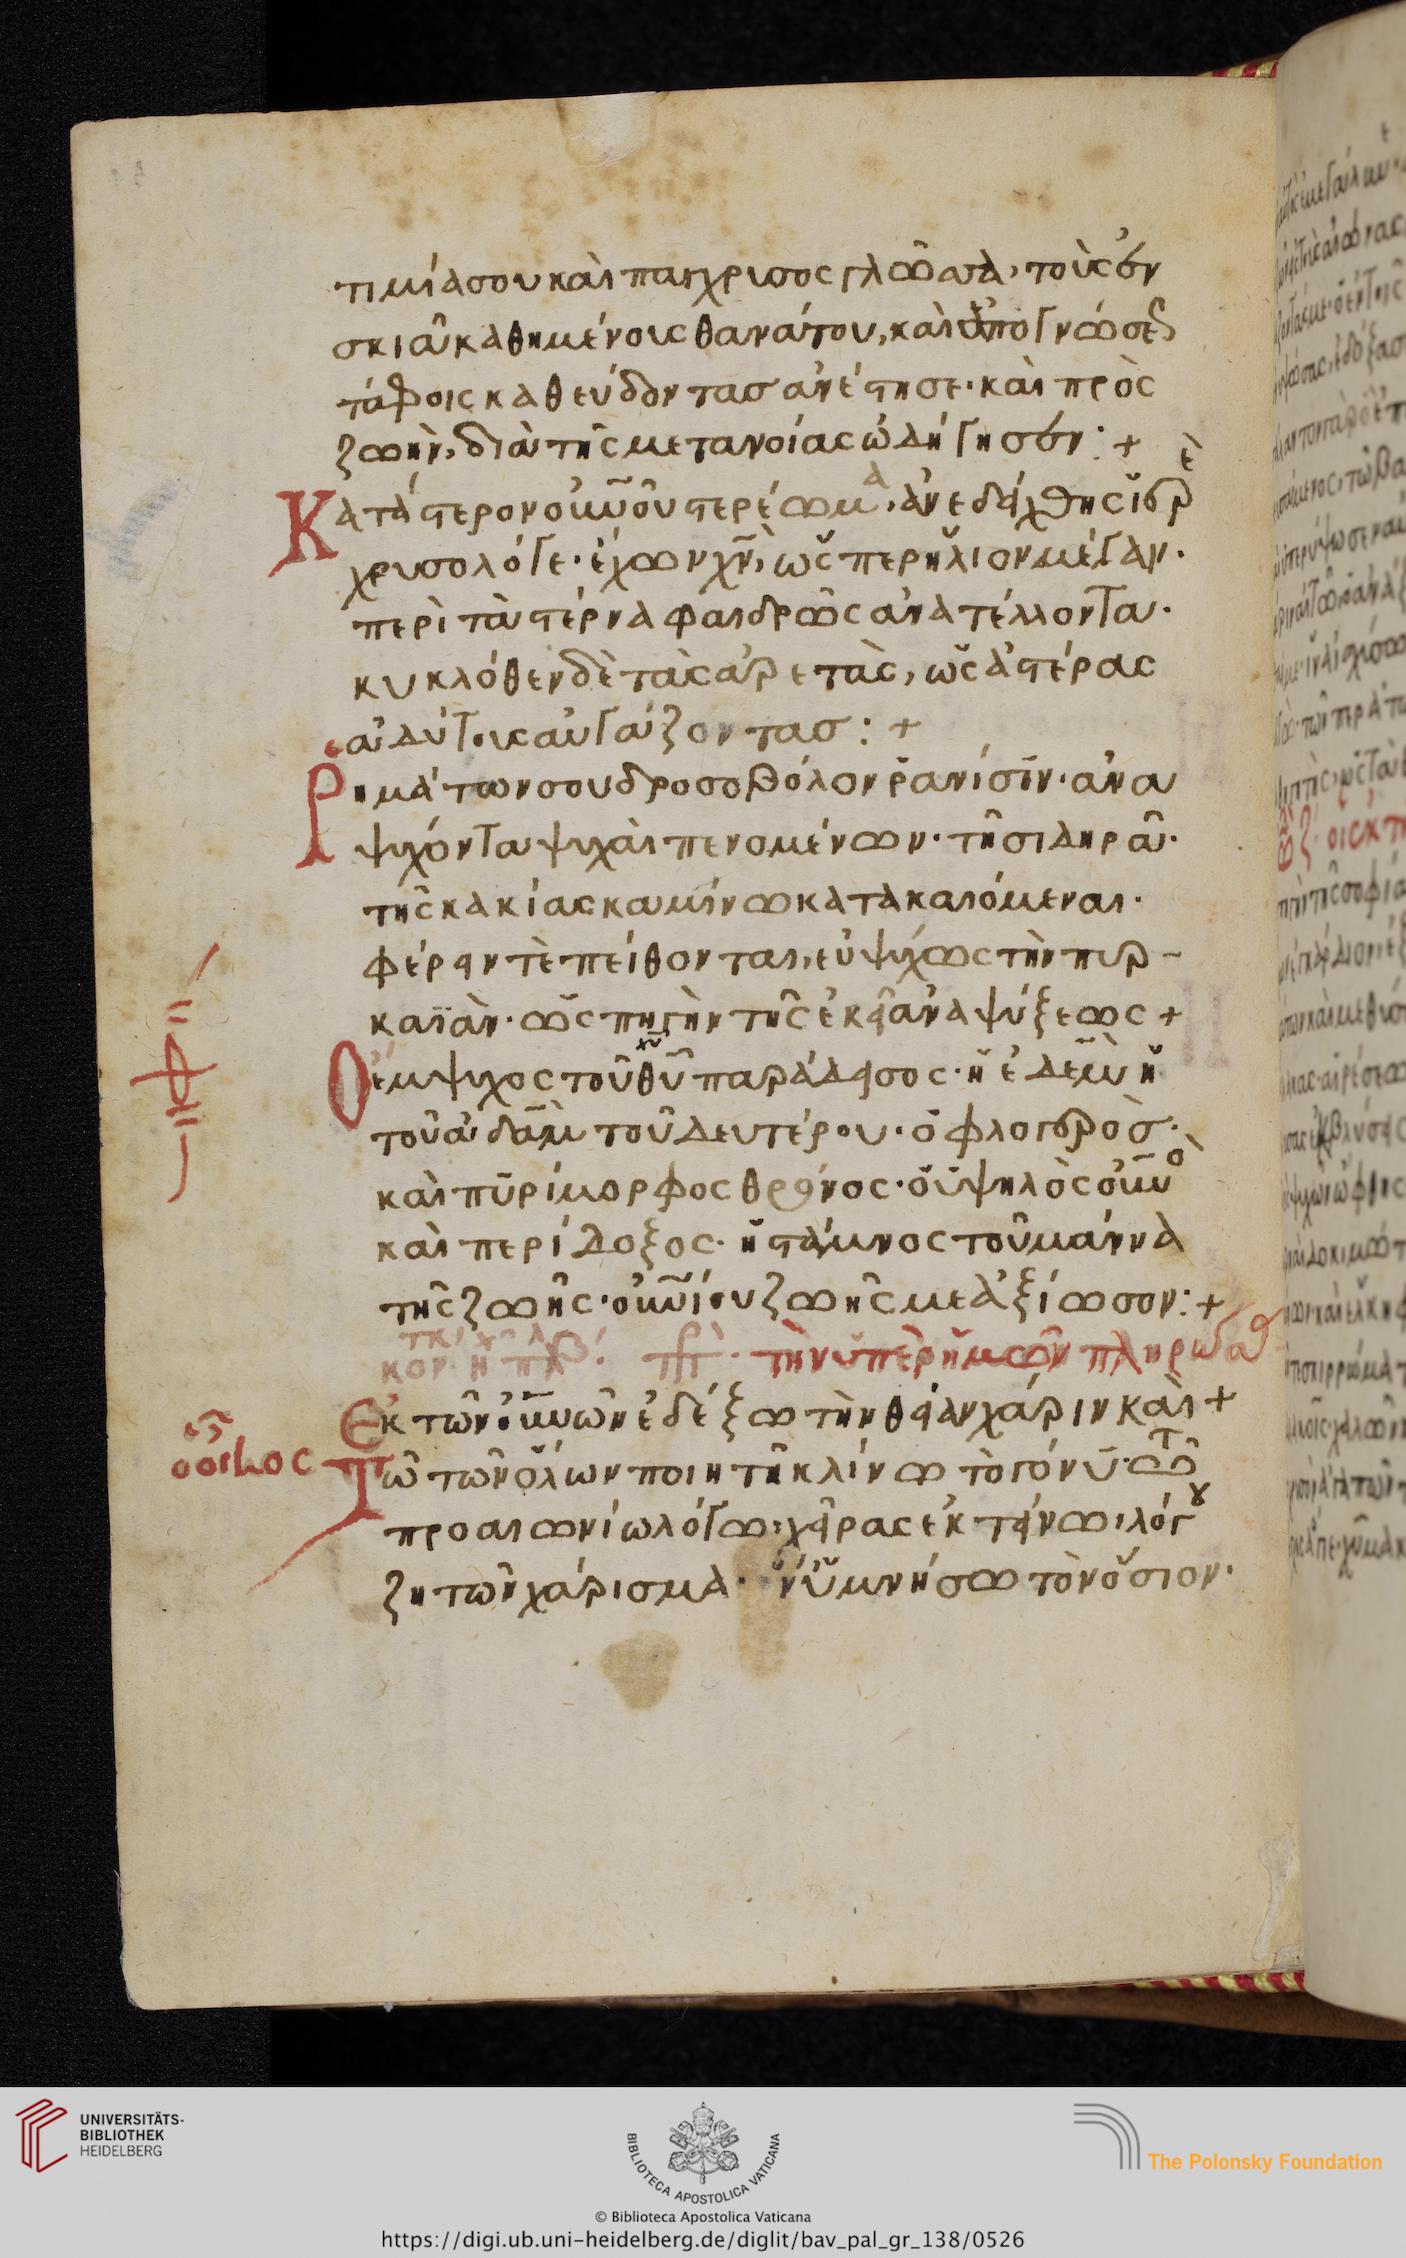 τιμία σου καὶ πάγχρυσος γλῶσσα, τοὺς ἐν
σκιᾶ καθημένοις θανάτου, καὶ ἀπογνώσεως
τάφοις καθεύδοντας ἀνέστησε· καὶ πρὸς
ζωὴν, διὰ τῆς μετανοίας ὡδήγησεν: +
Κατάστερον οὐνοῦ στερέωμα, ἀνεδείχθης ἱερὲ
χρυσολόγε· ἔχων χν̅, ὥσπερ ἥλιον μέγαν·
περὶ τὰ στέρνα φαιδρῶς ἀνατέλλοντα·
κυκλόθεν δὲ τὰς ἀρετὰς, ὡς ἀστέρας
ἀδύτοις αὐγάζοντας: +
Ῥημάτων σου δροσοβόλον ῥανίσιν· ἀνα
ψύχονται ψυχαὶ πενομένων· τῆ σιδηρᾶ·
τῆς κακίας καμίνω κατακαιόμεναι·
φέρειν τὲ πείθονται, εὐψύχως τὴν πυρ-
καϊὰν· ὡς πηγὴν τῆς ἐκεῖ ἀναψύξεως +
Ὁ ἔμψυχος τοῦ θυ̅ παράδεισος· ἡ ἐδὲμ ἡ
χυ̅
τοῦ ἀδὰμ τοῦ δευτέρου· ὁ φλογερὸς·
καὶ πυρίμορφος θρόνος· ὁ ὑψηλὸς οὐνὸ
καὶ περίδοξος· ἡ στάμνος τοῦ μάννα
τῆς ζωῆς· οὐνίου ζωῆς με ἀξίωσον: +
κον· ἦ πλ δ΄· τὴν ὑπὲρ ἡμῶν πληρώσας
Ἐκ τῶν οὐνῶν ἐδέξω τὴν θείαν χάριν καὶ +
ὁ οἶκος Τῶ τῶν ὅλων ποιητῆ κλίνω τὸ γόνυ· τῶ
προαιωνίω λόγω, χεῖρας ἐκτείνω, λόγου
ζητῶν χάρισμα· ἵν' ὑμνήσω τὸν ὅσιον·
UNIVERSITÄTS-
BIBLIOTHEK
HEIDELBERG
BIBLIOTECA APOSTOLICA VATICANA
The Polonsky Foundation
© Biblioteca Apostolica Vaticana
https://digi.ub.uni-heidelberg.de/diglit/bav_pal_gr_138/0526